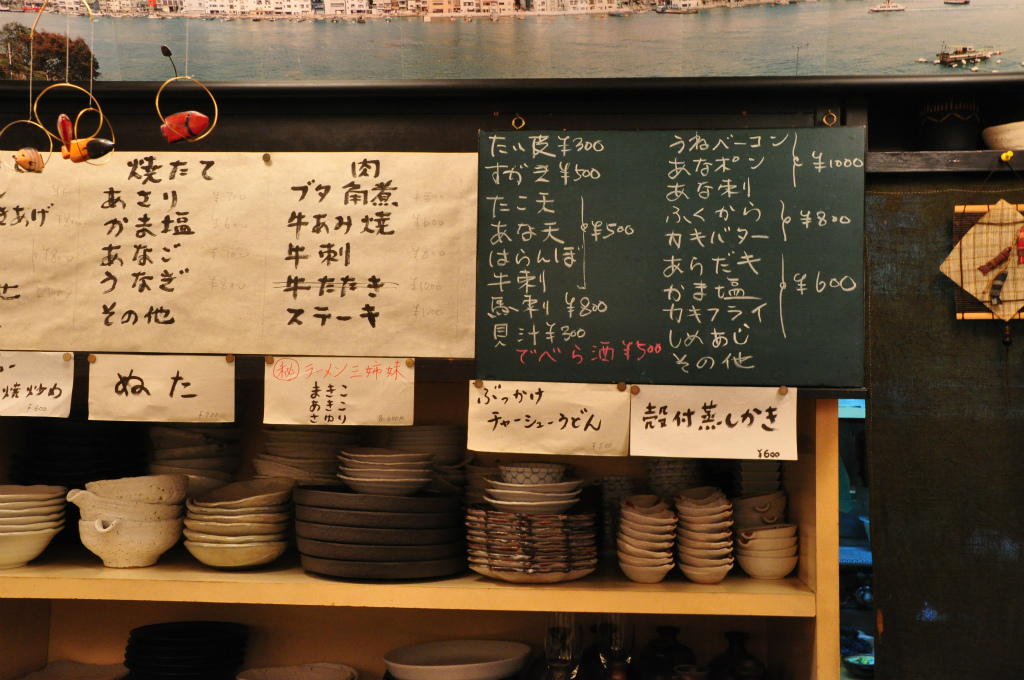 きあげ
焼たて
あさり
かま塩
あなご
うなぎ
その他
肉
ブタ角煮
牛あみ焼
牛刺
牛たたき
ステーキ
たい皮¥300
すがき¥500
たこ天
あな天
はらんぼ
牛刺
¥500
馬刺 ¥800
貝汁¥300
でべら酒¥500
うねベーコン
あなポン
¥1000
あな刺り
ふくから
カキバター
¥800
あらだキ
かま塩
カキフライ
¥600
しめあじ
その他
焼炒め
¥600
ぬた
㊙ラーメン三姉妹
まきこ
あきこ
さゆり
ぶっかけ
チャーシューうどん
¥500
殻付蒸しかき
¥600